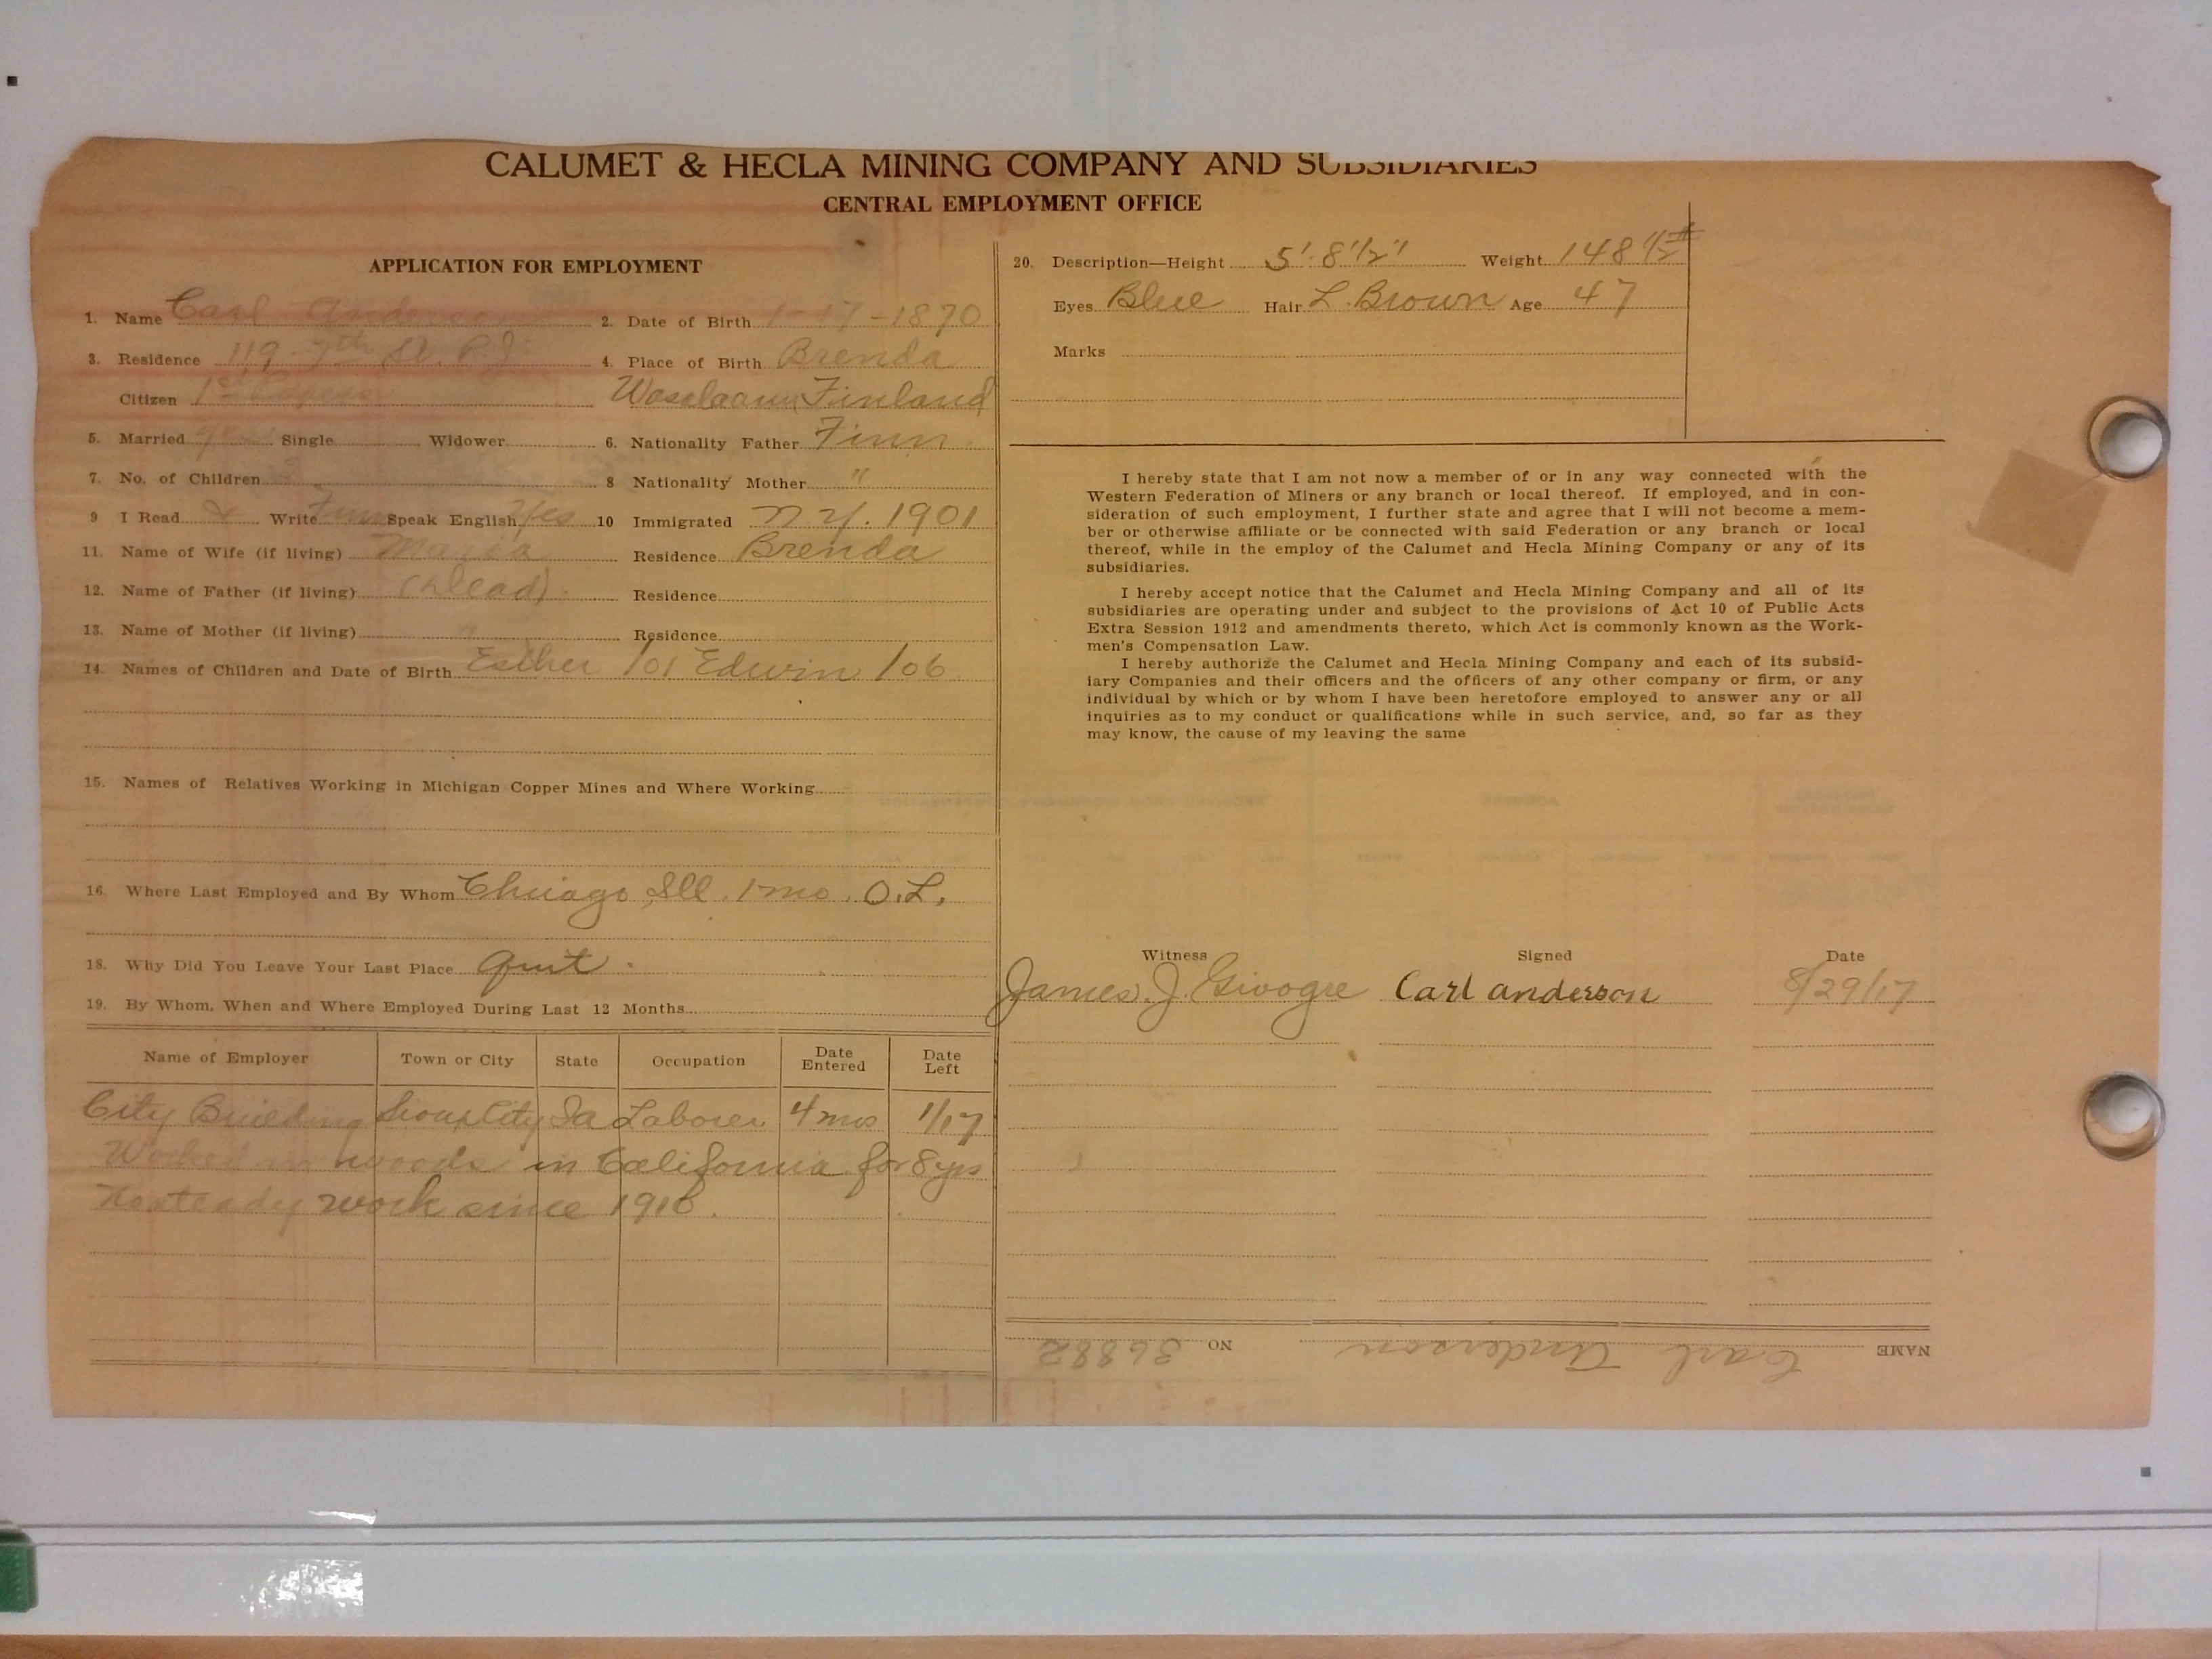 CALUMET & HECLA MINING COMPANY AND SUBSIDIARIES
CENTRAL EMPLOYMENT OFFICE
APPLICATION FOR EMPLOYMENT
1. Name Carl Anderson 2. Date of Birth 1-17-1870
3. Residence 119 7th St. P.J. 4. Place of Birth Brenda
Citizen 1st Papers Finland
5. Married yes Single Widower 6. Nationality Father Finn
7. No. of Children 2 8 Nationality Mother "
9 I Read & Write Finn Speak English Yes 10 Immigrated N.Y. 1901
11. Name of Wife (if living) Maria Residence Brenda
12. Name of Father (if living) (Dead). Residence
13. Name of Mother (if living) " Residence
14. Names of Children and Date of Birth Esther /01 Edwin /06
15. Names of Relatives Working in Michigan Copper Mines and Where Working
16. Where Last Employed and By Whom Chicago, Ill. 1 mo. O.L.
18. Why Did You Leave Your Last Place Quit.
19. By Whom, When and Where Employed During Last 12 Months
Name of Employer Town or City State Occupation Date Entered Date Left
City Building Sioux City Ia Laborer 4 mos 1/17
Worked in woods in California for 8 yrs
No steady work since 1916.
20. Description—Height 5' 8 1/2" Weight 148 1/2#
Eyes Blue Hair L. Brown Age 47
Marks
I hereby state that I am not now a member of or in any way connected with the
Western Federation of Miners or any branch or local thereof. If employed, and in con-
sideration of such employment, I further state and agree that I will not become a mem-
ber or otherwise affiliate or be connected with said Federation or any branch or local
thereof, while in the employ of the Calumet and Hecla Mining Company or any of its
subsidiaries.
I hereby accept notice that the Calumet and Hecla Mining Company and all of its
subsidiaries are operating under and subject to the provisions of Act 10 of Public Acts
Extra Session 1912 and amendments thereto, which Act is commonly known as the Work-
men's Compensation Law.
I hereby authorize the Calumet and Hecla Mining Company and each of its subsid-
iary Companies and their officers and the officers of any other company or firm, or any
individual by which or by whom I have been heretofore employed to answer any or all
inquiries as to my conduct or qualifications while in such service, and, so far as they
may know, the cause of my leaving the same
Witness Signed Date
James J. Carl anderson 8/29/17
NAME Carl Anderson NO 36882